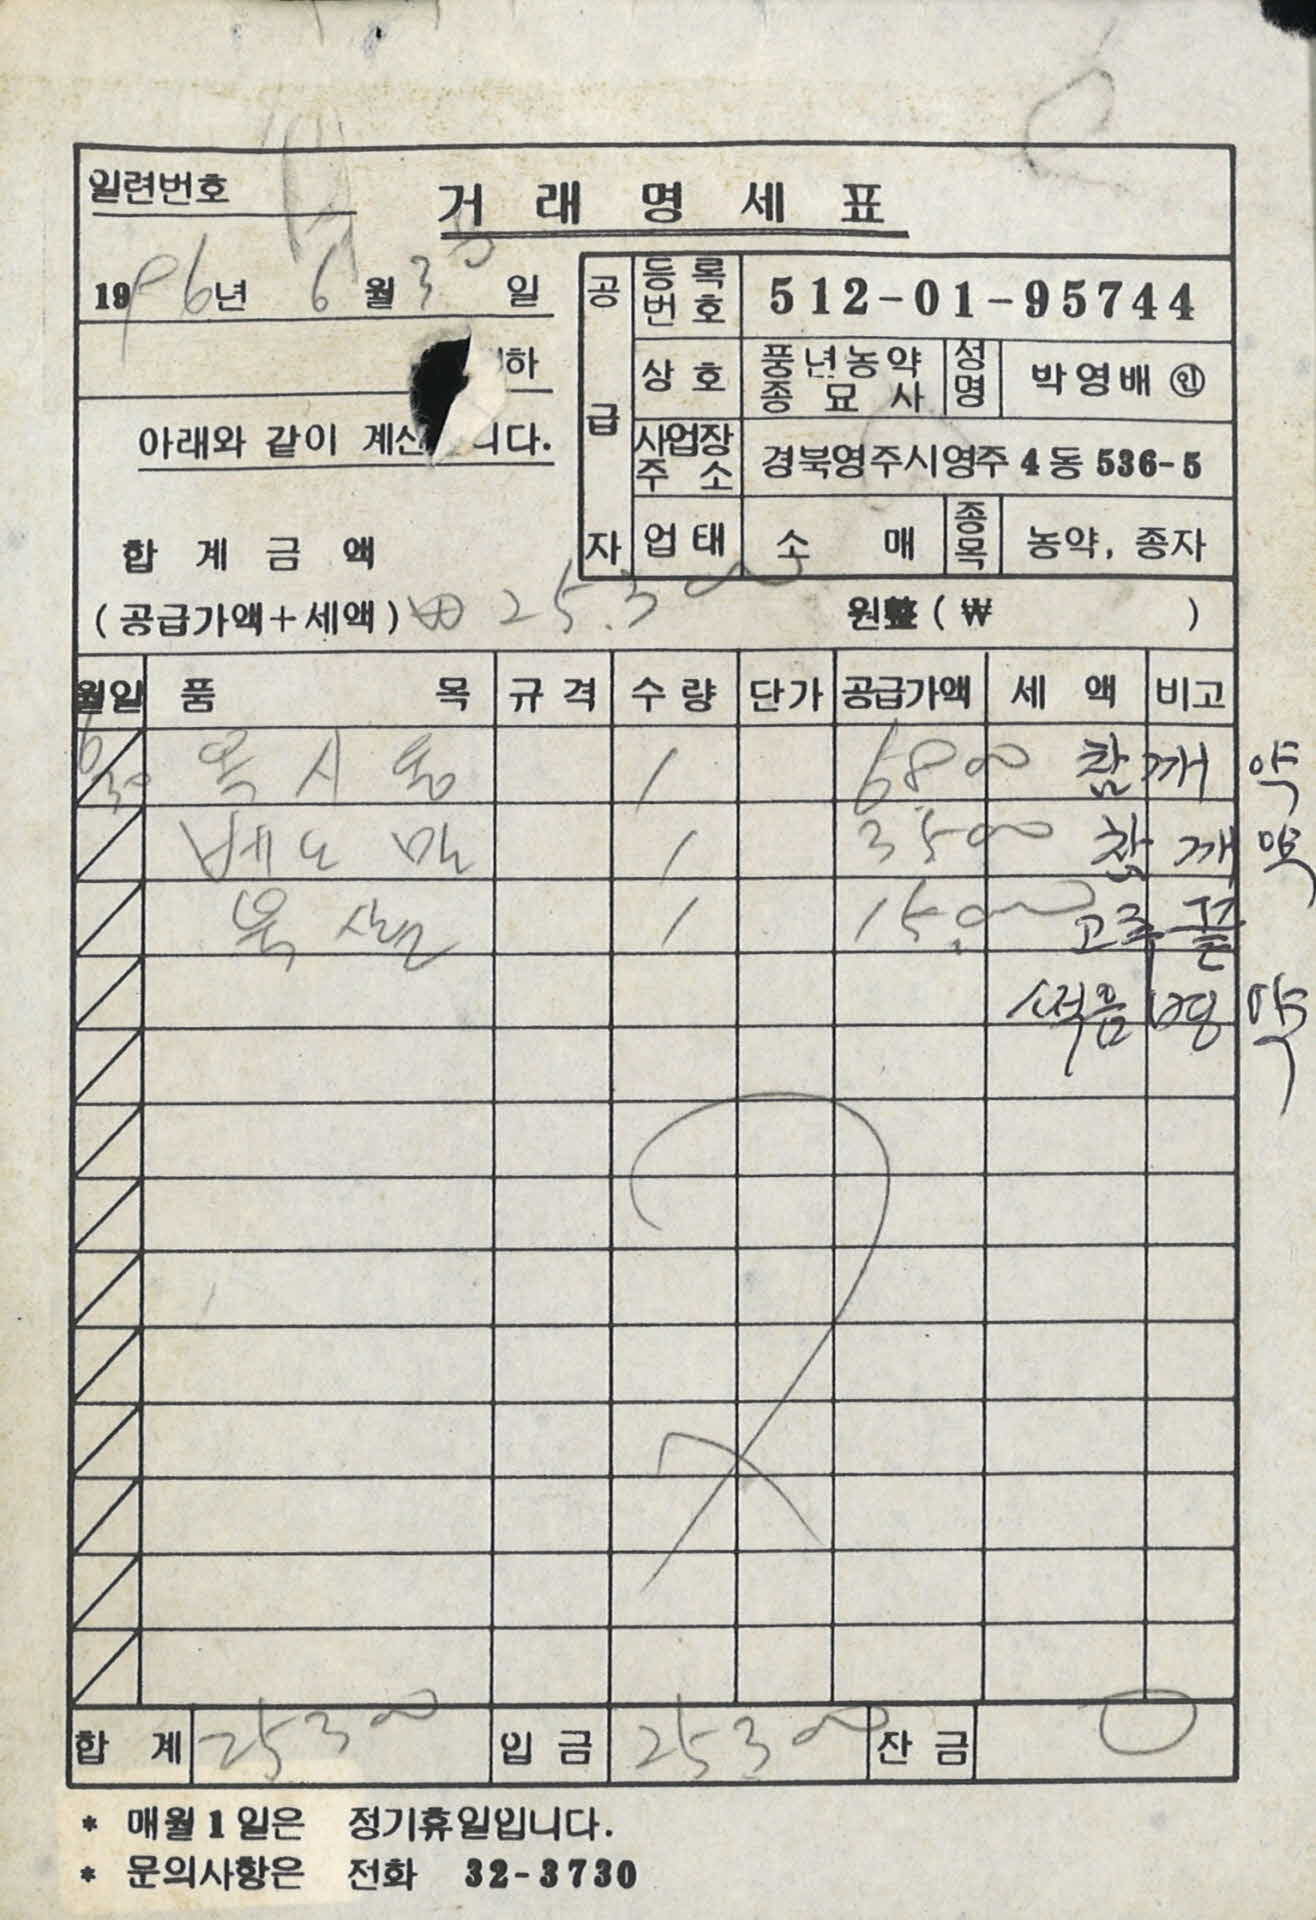 일련번호
거래명세표
1996년 6월 30일
하
아래와 같이 계산 니다.
공급자
등록번호 512-01-95744
상호 풍년농약종묘사 성명 박영배 ㊞
사업장주소 경북영주시영주4동 536-5
업태 소매 종목 농약, 종자
합계금액
(공급가액+세액) ₩ 25.300 원整 (₩ )
월일 품목 규격 수량 단가 공급가액 세액 비고
6/30 옥시동 1 6800 참깨 약
1 3500 참깨 약
1 15.000 고추
썩음병 약
합계 25300 입금 25300 잔금 0
* 매월 1일은 정기휴일입니다.
* 문의사항은 전화 32-3730